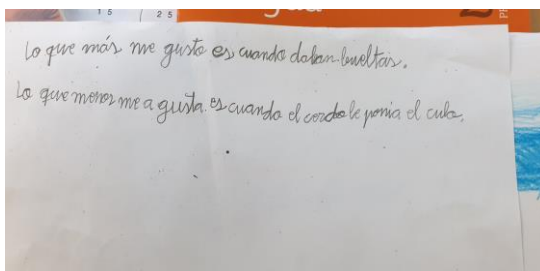 15 25
Lo que más me gusto es cuando daban bueltas.
Lo que menos me a gusta es cuando el cerdo le ponia el culo.